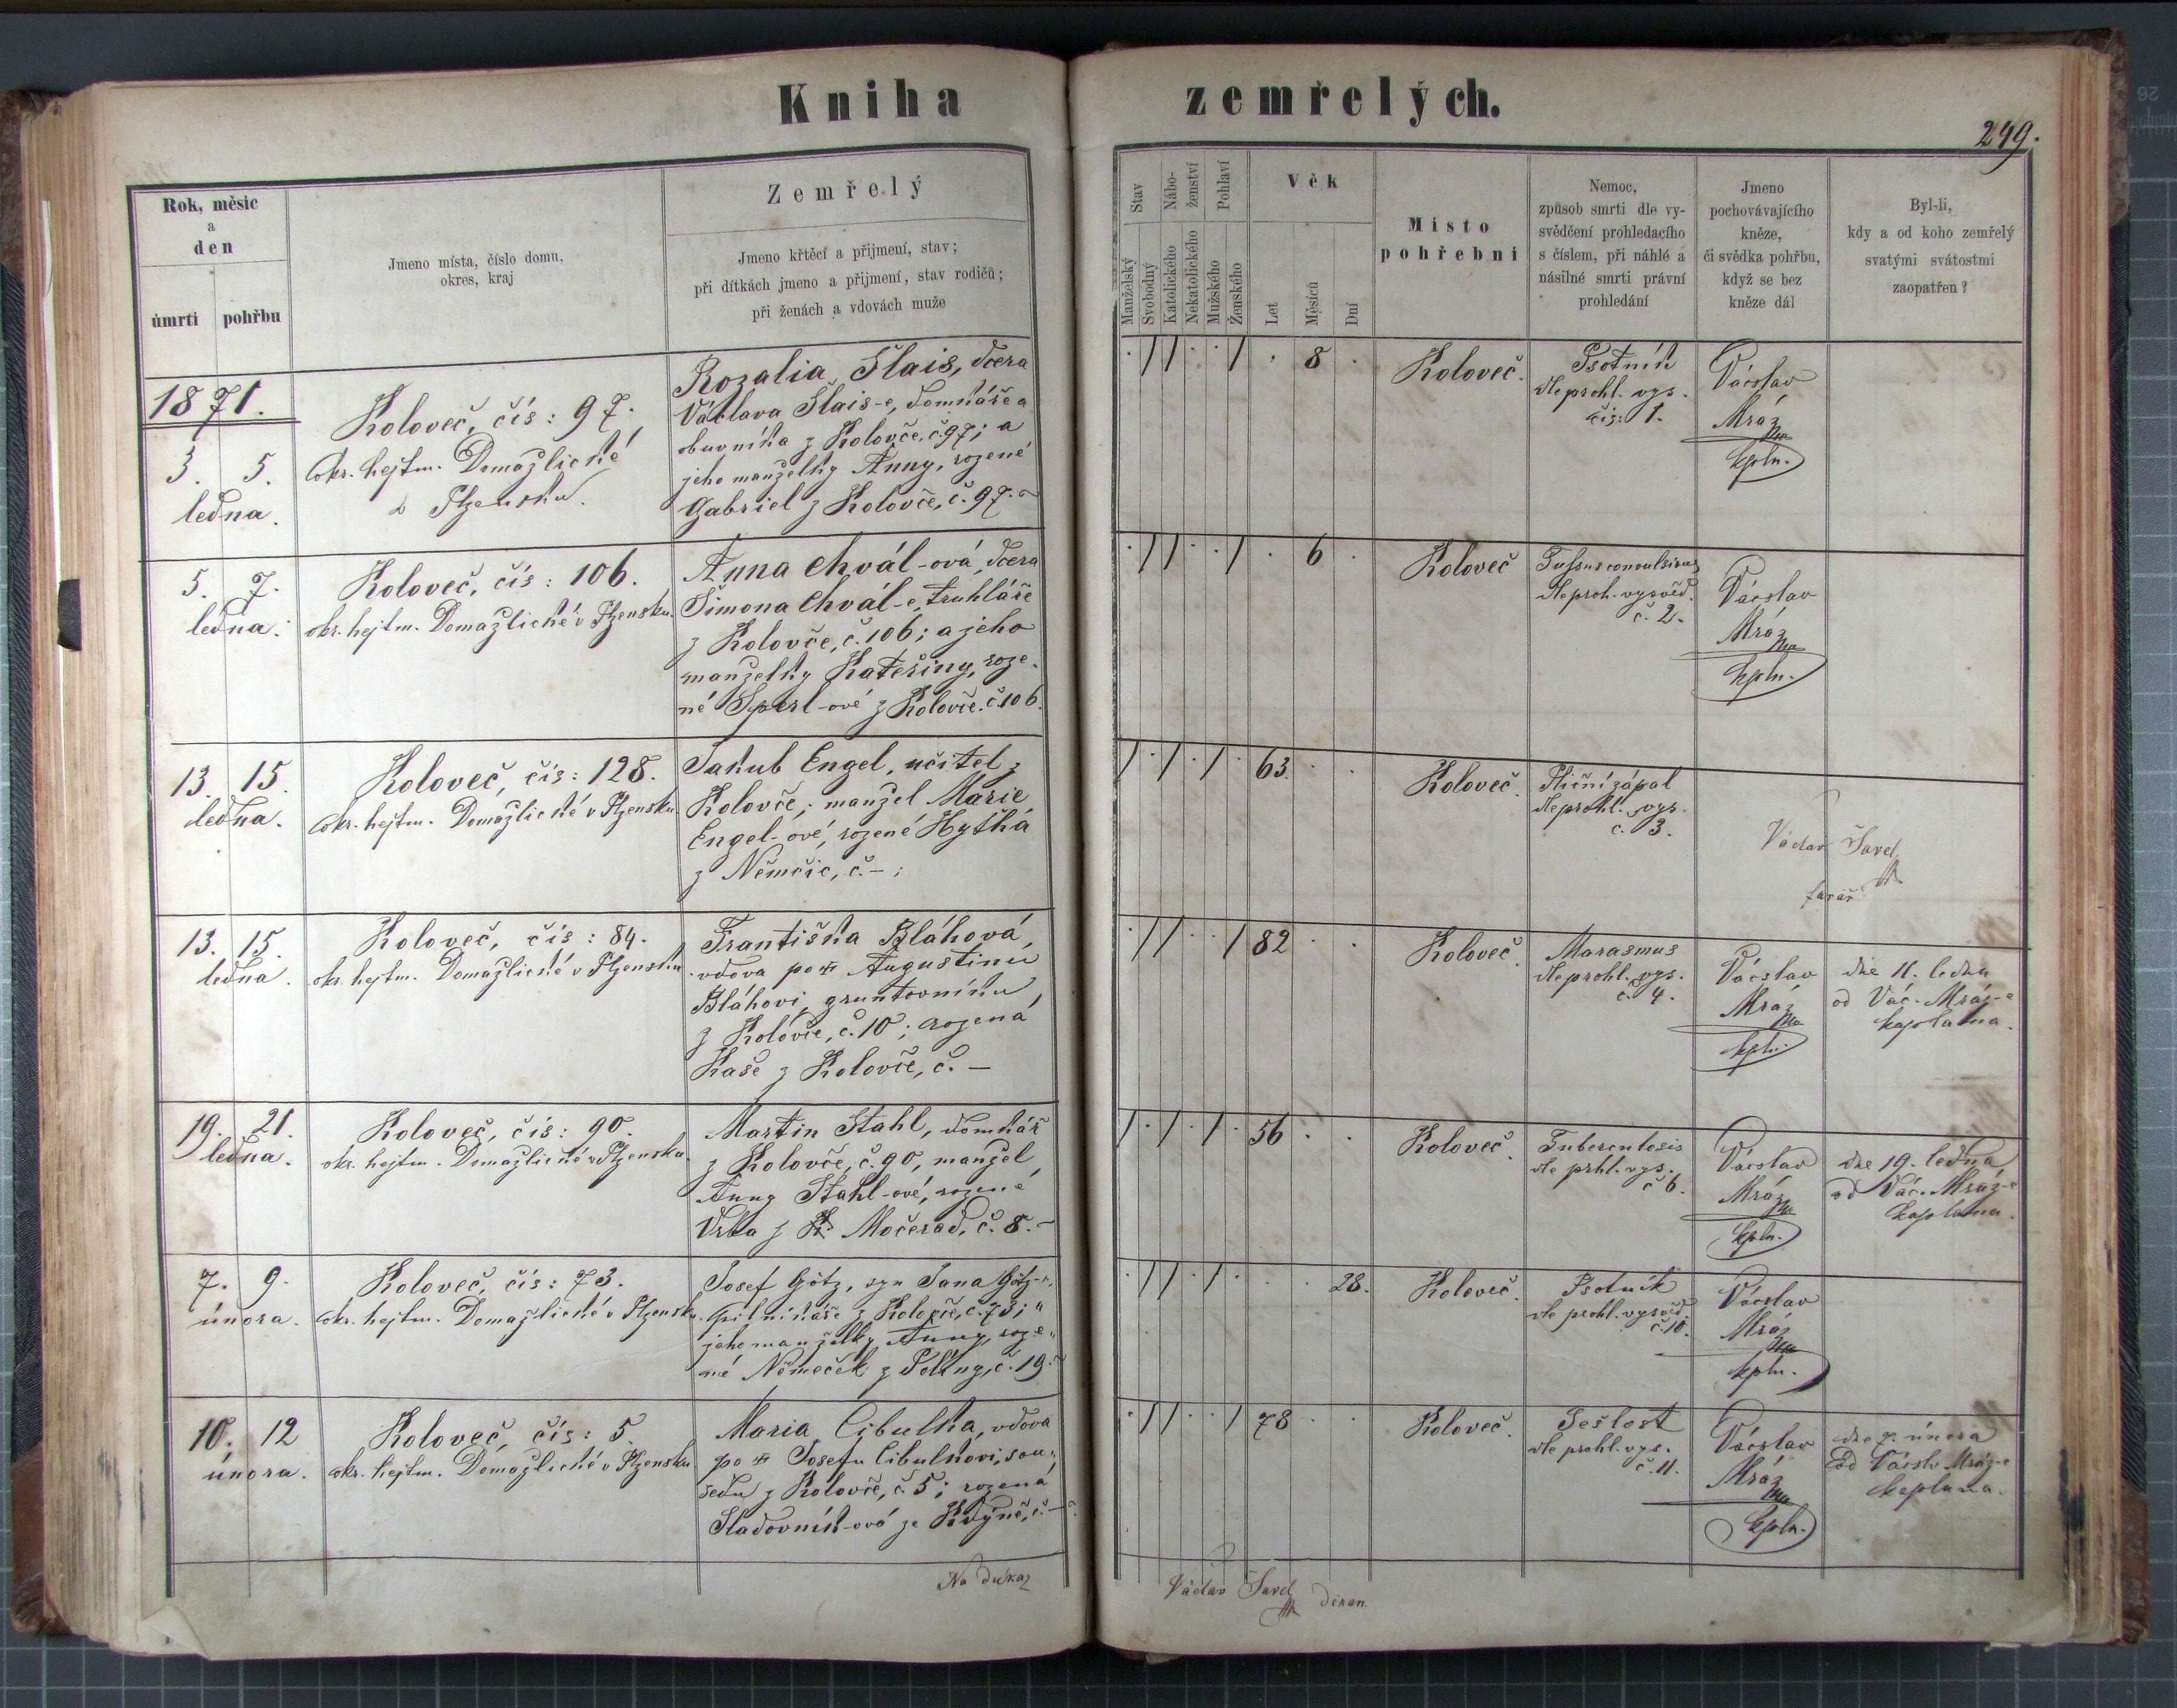 Kniha zemřelých.
249.
Rok, měsíc
a
den
úmrtí
pohřbu
Jmeno místa, číslo domu,
okres, kraj
Zemřelý
Jmeno křtěcí a přijmení, stav;
při dítkách jmeno a přijmení, stav rodičů;
při ženách a vdovách muže
Stav
Manželský
Svobodný
Nábo-
ženství
Katolického
Nekatolického
Pohlaví
Mužského
Ženského
Věk
Let
Měsíců
Dní
Místo
pohřební
Nemoc,
způsob smrti dle vy-
svědčení prohledacího
s číslem, při náhlé a
násilné smrti právní
prohledání
Jmeno
pochovávajícího
kněze,
či svědka pohřbu,
když se bez
kněze dál
Byl-li,
kdy a od koho zemřelý
svatými svátostmi
zaopatřen?
1871.
3. 5.
ledna.
Koloveč, čís: 97.
okr. hejtm. Domažlické
v Plzensku.
Rozalia Šlais, dcera
Václava Šlais-e, domkáře a
obuvníka z Kolovče, č. 97; a
jeho manželky Anny, rozené
Gabriel z Kolovče, č. 97.
· / / · · / · 8 ·
Koloveč.
Psotník
dle prohl. vys.
čís: 1.
Vácslav
Mráz
kpln.
5. 7.
ledna.
Koloveč, čís: 106.
okr. hejtm. Domažlické v Plzensku.
Anna Chvál-ová, dcera
Šimona Chvál-e, truhláře
z Kolovče, č. 106; a jeho
manželky Kateřiny, roze-
né Sperl-ové z Kolovče. č. 106.
· / / · · / · 6 ·
Koloveč
Tussus convulsivus
dle proh. vysvěd.
č. 2.
Vácslav
Mráz
kpln.
13. 15.
ledna.
Koloveč, čís: 128.
okr. hejtm. Domažlické v Plzensku
Jakub Engel, učitel z
Kolovče; manžel Marie
Engel-ové, rozené Hytka
z Němčic, č. – ;
/ · / · / · 63. · ·
Koloveč.
Plicní zápal
dle prohl. vys.
č. 3.
Václav Šavel
farář
13. 15.
ledna.
Koloveč, čís: 84.
okr. hejtm. Domažlické v Plzensku
Františka Bláhová,
vdova po † Augustinu
Bláhovi, gruntovníku
z Kolovče, č. 10; rozená
Kaše z Kolovče, č. –
· / / · · / 82 · ·
Koloveč.
Marasmus
dle prohl. vys.
č. 4.
Vácslav
Mráz
kpln.
dne 11. ledna
od Vác. Mráz-e
kaplana.
19. 21.
ledna.
Koloveč, čís: 90.
okr. hejtm. Domažlické v Plzensku.
Martin Stahl, domkář
z Kolovče, č. 90, manžel
Anny Stahl-ové, rozené
Vrba z Močerad, č. 8. –
/ · / · / · 56 · ·
Koloveč.
Tuberculosis
dle prhl. vys.
č 6.
Vácslav
Mráz
kpln.
dne 19. ledna
od Vác. Mráz-e
kaplana.
7. 9.
února.
Koloveč, čís: 73.
okr. hejtm. Domažlické v Plzensku.
Josef Götz, syn Jana Götz-e,
pilníkáře z Kolovče, č. 73; a
jeho manželky Anny, roze-
né Němeček z Poliny, č. 19.
· / / · / · · · 28.
Koloveč.
Psotník
dle prohl. vysvěd.
č. 10.
Vácslav
Mráz
kpln.
10. 12
února.
Koloveč, čís: 5.
okr. hejtm. Domažlické v Plzensku
Maria Cibulka, vdova
po † Josefu Cibulkovi, sou-
sedu z Kolovče, č. 5; rozená
Sladovník-ová ze Kdyně, č. –
· / / · · / 78 · ·
Koloveč.
Sešlost
dle prohl. vys.
č. 11.
Vácslav
Mráz
kpln.
dne 7. února
Od Vácslv Mráz-e
kaplana.
Na důkaz
Václav Šavel děkan.